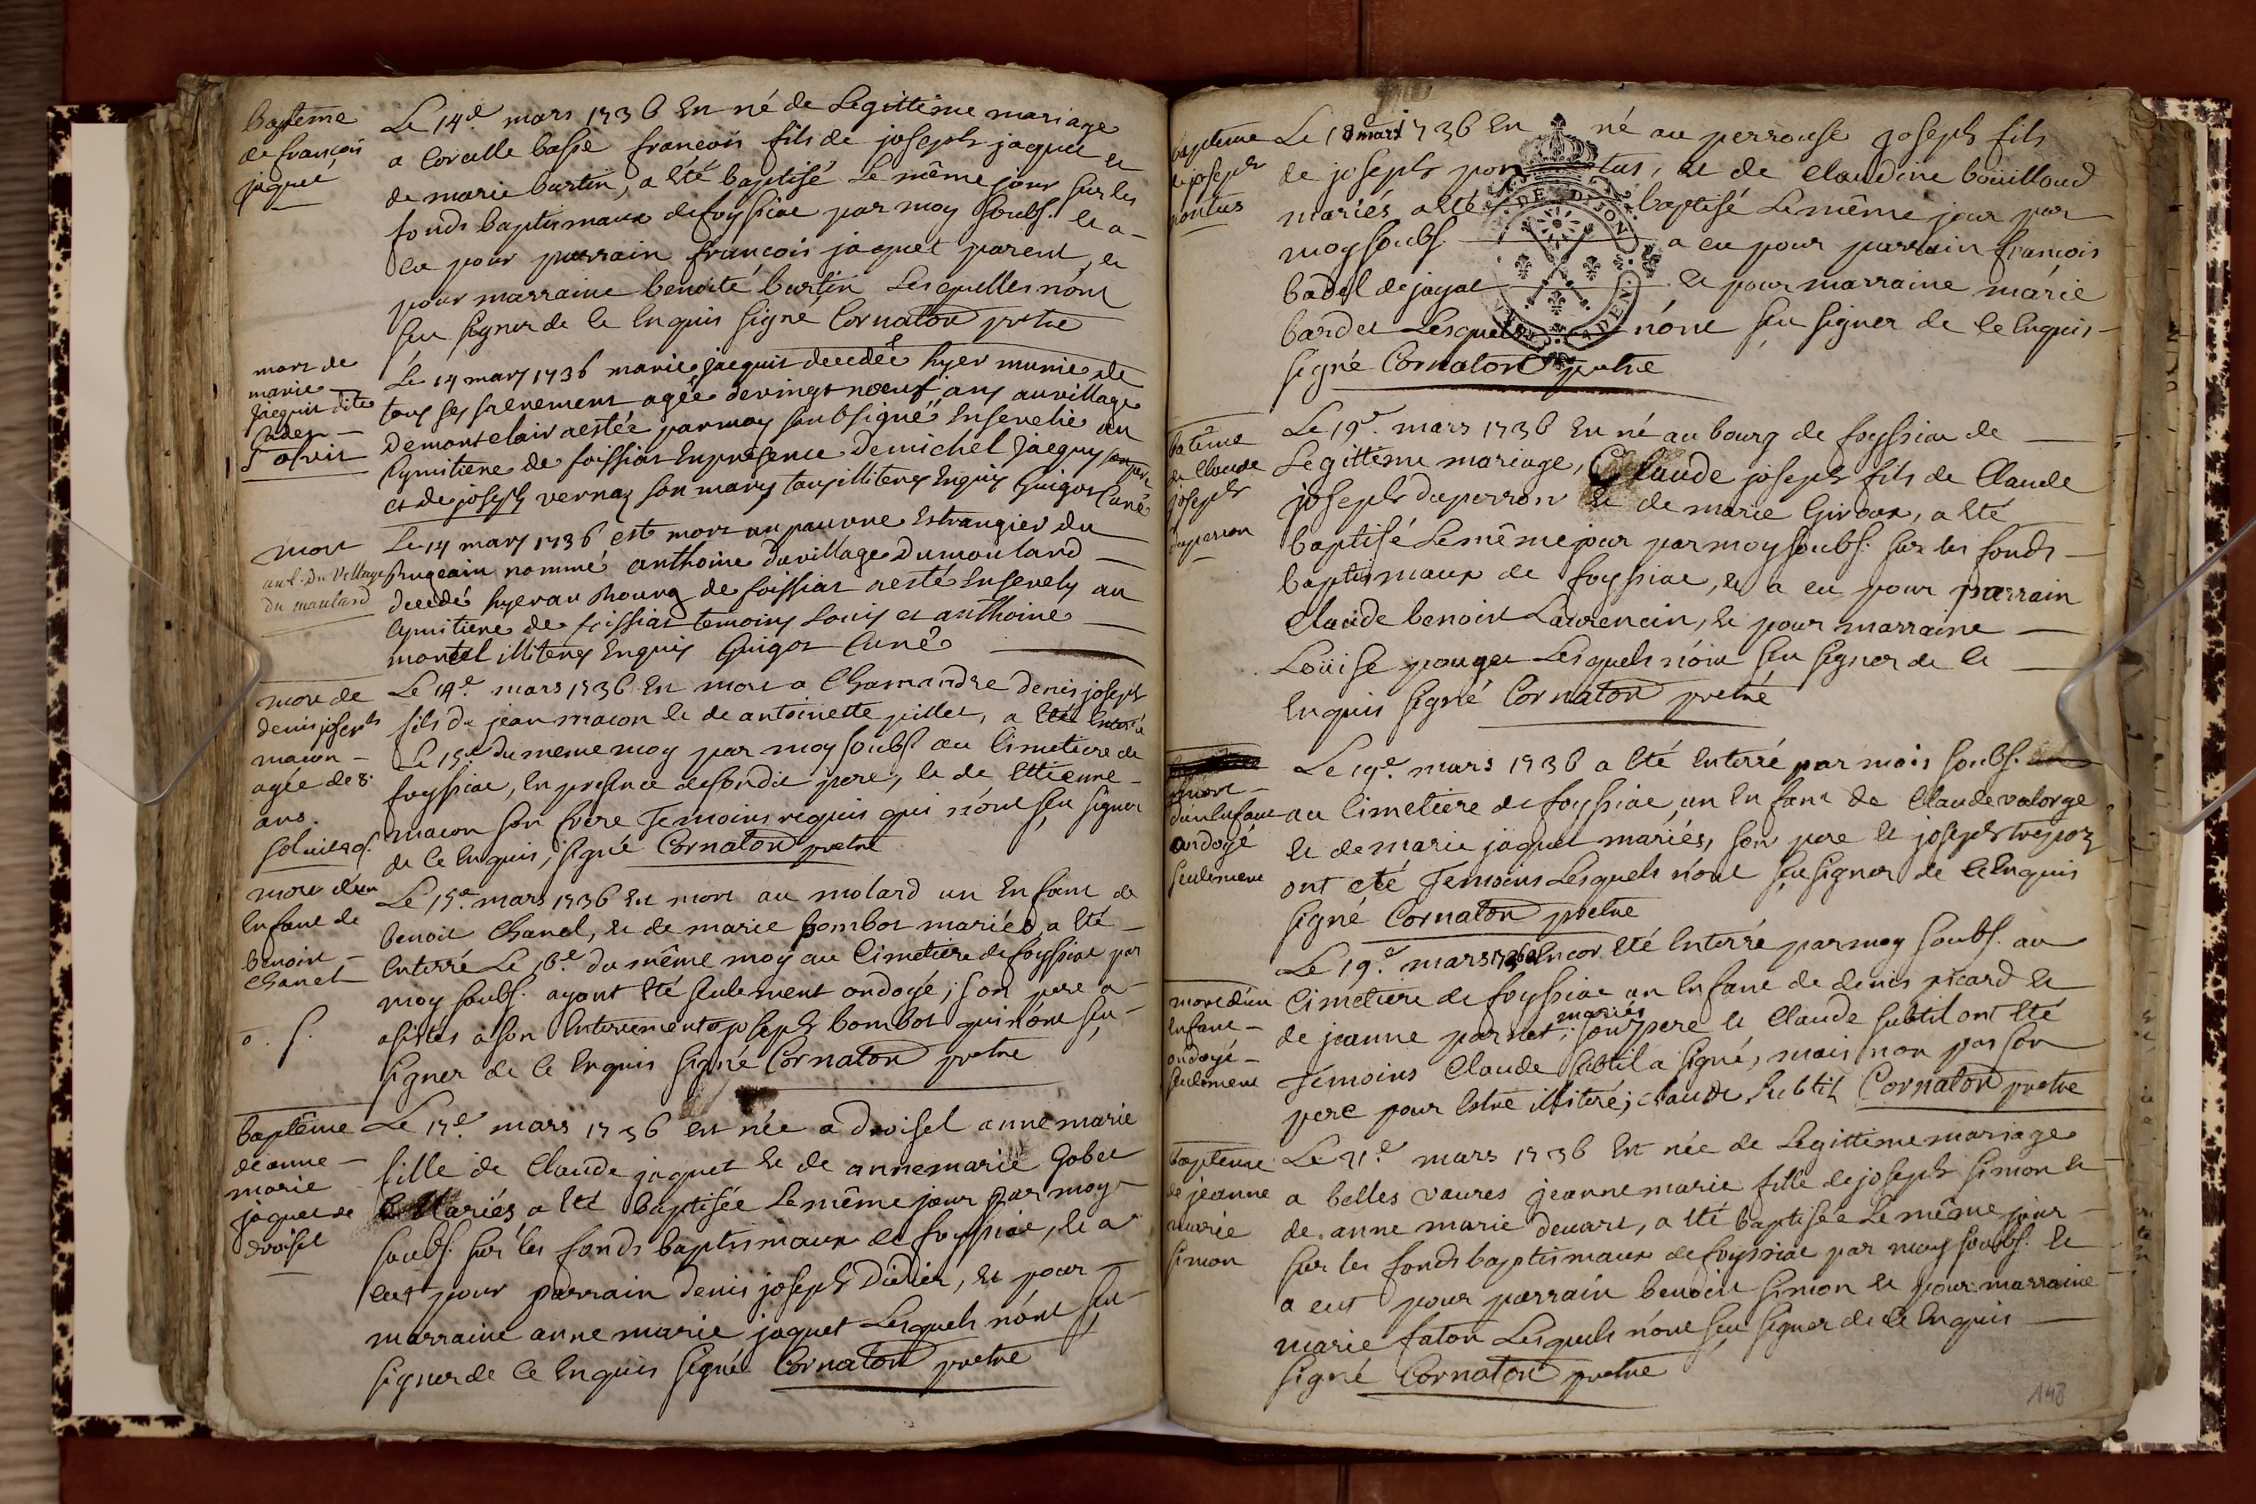 baptême
de françois
jaquet
Le 14e. mars 1736 est né de Legittime mariage
a Corcelle basse francois fils de joseph jaquet et
de marie burtin, a été baptisé Le même jour sur les
fonds baptismaux de foyssiac par moy soubs. et a
eu pour parrain francois jaquet parent, et
pour marraine benoite burtin Lesquelles n'ont
sçu signer de ce Enquis signé Cornaton prêtre
mort de
marie
Jacquis dite
Le 14 mars 1736 marie Jacquis decedée hyer munie de
tous ses sacrement agée de vingt noeuf ans au village
de montclair aestée par moy soubsigné Ensevelie au
Cymitiere de foissiat En presence de michel Jacquis son pere
et de joseph vernaz son mary tous illiterés Enquis Guigot Curé
mort
ant. du village
du moulard
Le 14 mars 1736 est mort un pauvre Estrangier du
nommé anthoine du village du moulard
decedé hyer au bourg de foissiat aesté Ensevely au
Cymitiere de foissiat temoins Louis et anthoine
montel illiterés Enquis Guigot Curé
mort de
denis joseph
macon
agée de 8.
ans.
Le 14e. mars 1736 est mort a Chamandre denis joseph
fils de jean macon et de antoinette pillet, a été Enterré
Le 15e du meme moy par moy soubs. au Cimetiere de
foyssiac, En presence de sondit pere, et de Ettienne
macon son frere Temoins requis qui n'ont sçu signer
de ce Enquis, signé Cornaton pretre
mort d'un
Enfant de
benoit
Chanel
o. s.
Le 15e. mars 1736 est mort au molard un Enfant de
benoit Chanel, et de marie bombot mariés, a été
Enterré Le 16e. du même moy au Cimetiere de foyssiac par
moy soubs. ayant été seulement ondoyé; son pere a
asistés a son Enterrement et joseph bombot qui n'ont sçu
signer de ce Enquis signé Cornaton pretre
baptême
de anne
marie
jaquet de
droisel
Le 17e. mars 1736 est née a droisel anne marie
fille de Claude jaquet et de annemarie Gobet
Mariés a été baptisée Le même jour par moy
soubs. sur les fonds baptismaux de foyssiac, et a
eut pour parrain denis joseph Didier, et pour
marraine anne marie jaquet Lesquels n'ont sçu
signer de ce Enquis signé Cornaton pretre
bapteme
de joseph
pontus
Le 18 mars 1736 est né au perrouse joseph fils
de joseph pontus, et de Claudine boüilloud
mariés a été baptisé Le même jour par
moy soubs. a eu pour parrain françois
badel de jayat et pour marraine marie
bardet Lesquels n'ont sçu signer de ce Enquis
signé Cornaton pretre
DE DIJON
batême
de Claude
joseph
duperron
Le 19e. mars 1736 est né au bourg de foyssiac de
Legittime mariage, Claude joseph fils de Claude
joseph duperron et de marie Giroux, a été
baptisé Le même jour par moy soubs. sur les fonds
baptismaux de foyssiac, et a eu pour parrain
Claude benoist Laurencin, et pour marraine
Loüise pouget Lesquels n'ont sçu signer de ce
Enquis signé Cornaton pretre
mort
d'un Enfant
ondoyé
seulement
Le 19e. mars 1736 a été Enterré par mois soubs.
au Cimetiere de foyssiac, un Enfant de Claude valorge
et de marie jaquet mariés, son pere et joseph
ont eté Temoins Lesquels n'ont sçu signer de ce Enquis
signé Cornaton pretre
mort d'un
Enfant
ondoyé
seulement
Le 19e. mars 1736 Encor été Enterré par moy soubs. au
Cimetiere de foyssiac un Enfant de denis picard et
de jeanne parnet mariés; son pere et Claude subtil ont été
Temoins Claude subtil a signé, mais non pas son
pere pour Estre illiteré; Claude Subtil Cornaton pretre
bapteme
de jeanne
marie
simon
Le 21e. mars 1736 est née de Legittime mariage
a belles vavres jeanne marie fille de joseph simon et
de anne marie devart, a été baptisée Le même jour
sur les fonds baptismaux de foyssiac par moy soubs. et
a eut pour parrain benoist simon et pour marraine
marie faton Lesquels n'ont sçu signer de ce Enquis
signé Cornaton pretre
148